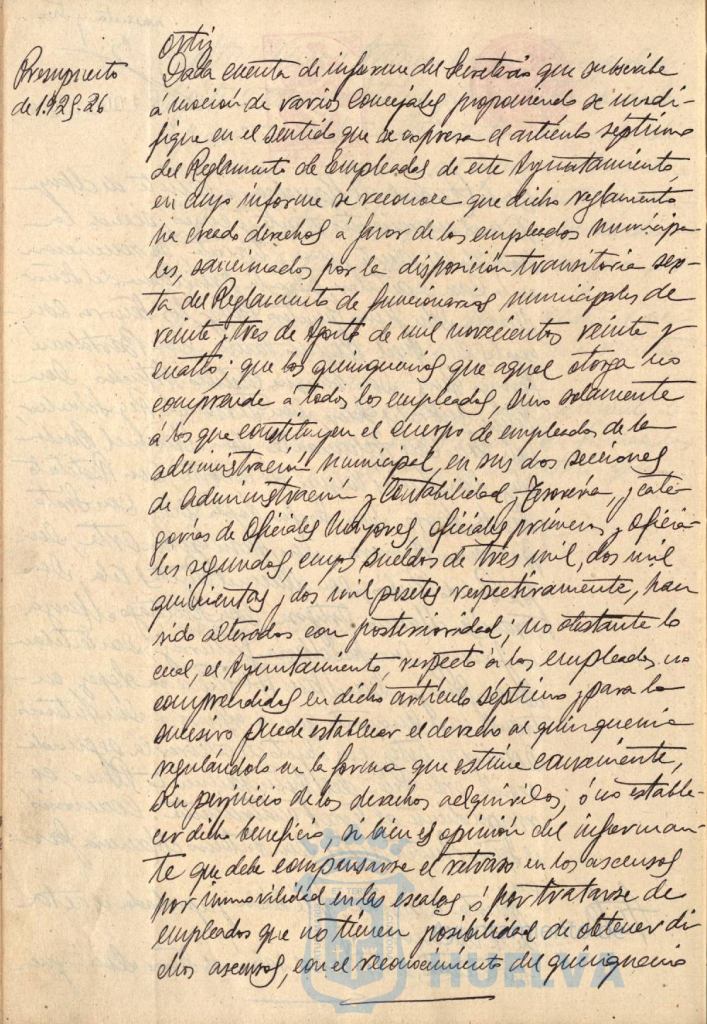 Ortiz
Presupuesto
de 1.925-26
Dada cuenta de informe del Secretario que subscribe
á moción de varios Concejales proponiendo se modi-
fique en el sentido que se expresa el artículo séptimo
del Reglamento de empleados de este Ayuntamiento,
en cuyo informe se reconoce que dicho reglamento
ha creado derechos á favor de los empleados municipa-
les, sancionados por la disposición transitoria sex-
ta del Reglamento de funcionarios municipales de
veinte y tres de Agosto de mil novecientos veinte y
cuatro; que los quinquenios que aquel otorga no
comprende á todos los empleados, sino solamente
á los que constituyen el cuerpo de empleados de la
administración municipal, en sus dos secciones
de Administración y Contabilidad y Tesorería, y cate-
gorías de Oficiales Mayores, oficiales primeros y oficia-
les segundos, cuyos sueldos de tres mil, dos mil
quinientas y dos mil pesetas respectivamente, han
sido alterados con posterioridad; no obstante lo
cual, el Ayuntamiento, respecto á los empleados no
comprendidos en dicho artículo séptimo y para lo
sucesivo puede establecer el derecho al quinquenio
regulándolo en la forma que estime conveniente,
sin perjuicio de los derechos adquiridos, ó no estable-
cer dicho beneficio, si bien es opinión del informan-
te que debe compensarse el retraso en los ascensos
por inmovilidad en las escalas ó por tratarse de
empleados que no tienen posibilidad de obtener di
chos ascensos, con el reconocimiento del quinquenio
HUELVA